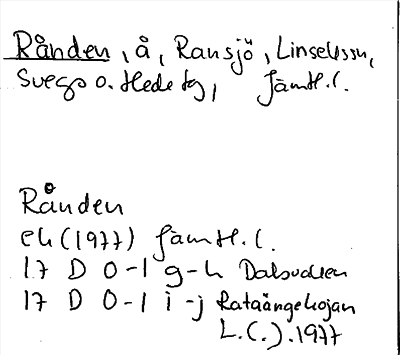 Rånden, å, Ransjö, Linsellssn,
Svegs o. Hede tg, Jämtl. l.
Rånden
ek (1977) Jämtl. l.
17 D 0-1 g-h Dalsvallen
17 D 0-1 i-j Rataängekojan
L. (.). 1977